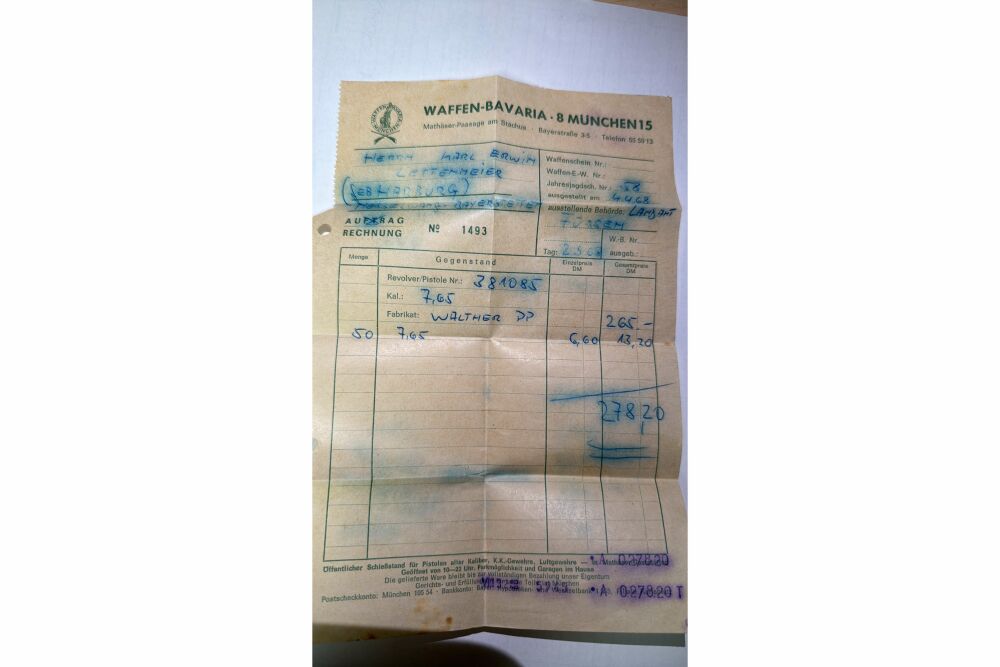 WAFFEN-BAVARIA · 8 MÜNCHEN 15
Mathäser-Passage am Stachus · Bayerstraße 3-5 · Telefon 55 59 13
WAFFEN-BAVARIA
MÜNCHEN
HERRN KARL ERWIN
LETTENMEIER
Waffenschein Nr.:
Waffen-E.-W. Nr.:
Jahresjagdsch. Nr.: 58
ausgestellt am 4.4.68
ausstellende Behörde: LANDAMT
FÜSSEN
AUFTRAG
RECHNUNG
Nº 1493
W.-B. Nr.
Tag:
ausgeb.:
Menge
Gegenstand
Einzelpreis DM
Gesamtpreis DM
Revolver/Pistole Nr.: 381085
Kal.: 7,65
Fabrikat: WALTHER PP 265.-
50 7,65 6,60 13,20
278,20
Öffentlicher Schießstand für Pistolen aller Kaliber, K.K.-Gewehre, Luftgewehre —
• A 0278.20
Geöffnet von 10—22 Uhr. Parkmöglichkeit und Garagen im Hause
Die gelieferte Ware bleibt bis zur vollständigen Bezahlung unser Eigentum
Gerichts- und
Postscheckkonto: München 105 54 · Bankkonto:
• A 0278.20 T